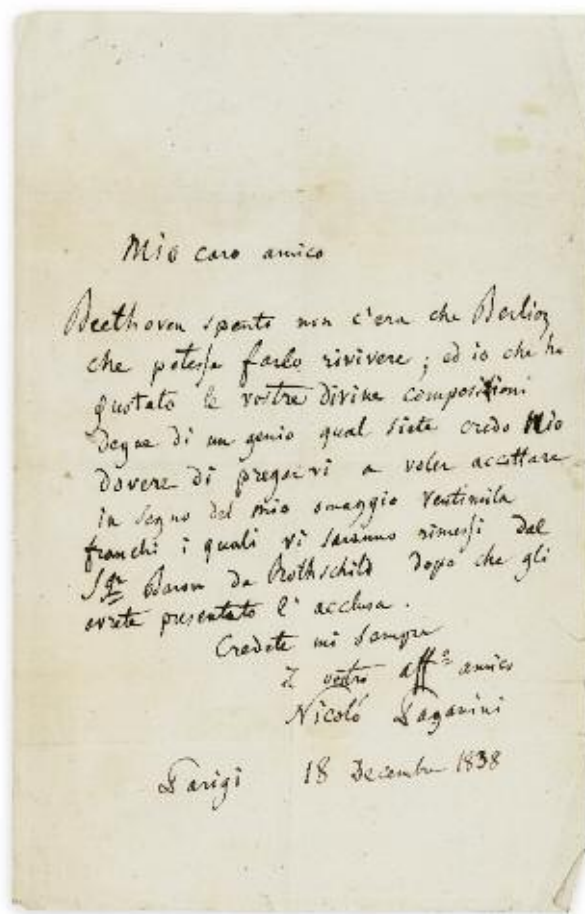 Mio caro amico
Beethoven spento non c'era che Berlioz
che potesse farlo rivivere; ed io che ho
gustato le vostre divine composizioni
degne di un genio qual siete credo mio
dovere di pregarvi a voler accettare
in segno del mio omaggio ventimila
franchi i quali vi saranno rimessi dal
Sgr Baron de Rothschild dopo che gli
avrete presentato l'acclusa.
Credete mi sempre
il vostro affo amico
Nicolò Paganini
Parigi 18 Decembre 1838